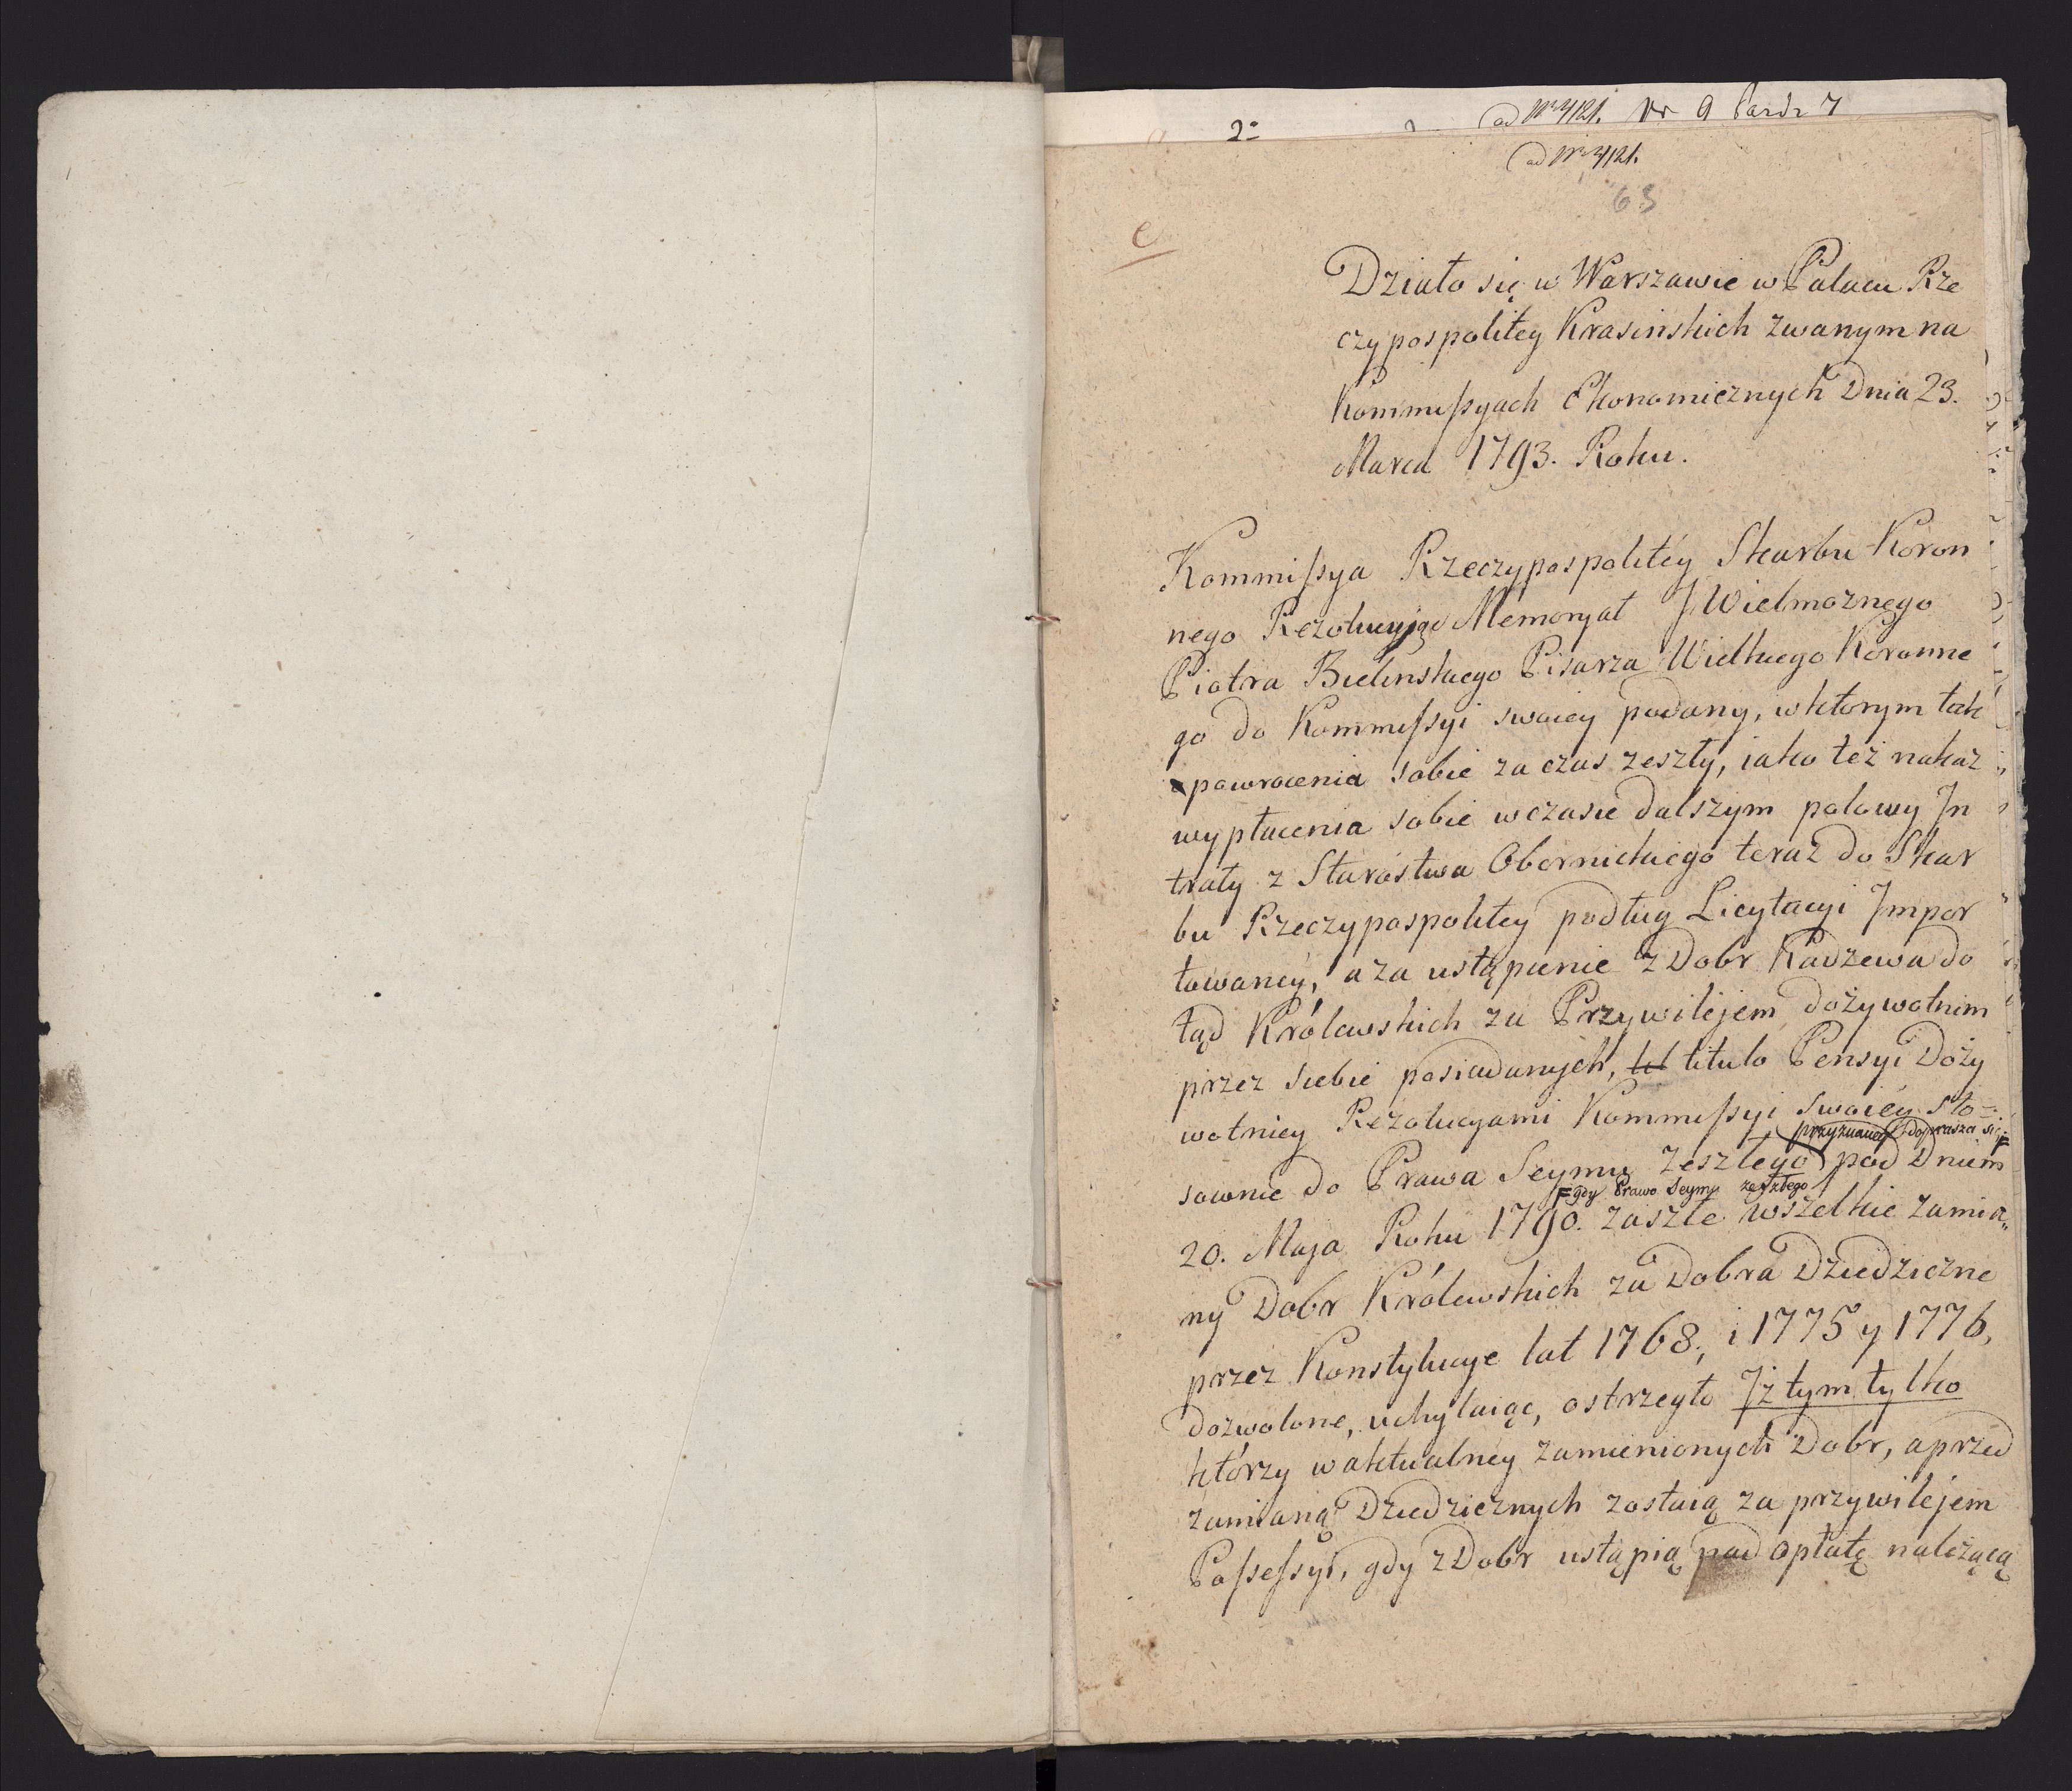 2=
ad Nr 4/121. Nr 9
ad Nr 4/121.
63
e
Działo się w Warszawie w Pałacu Rze
czypospolitey Krasinskich zwanym na
Kommissyach Ekonomicznych Dnia 23.
Marca 1793. Roku.
Kommissya Rzeczypospolitéy Skarbu Koron
nego Rezolwując Memoryał JWielmoznego
Piotra Bielinskiego Pisarza Wielkiego Koronne
go do Kommissyi swoiey podany, w ktorym tak
powrocenia sobie za czas zeszły, iako też nakaz
wypłacenia sobie w czasie dalszym połowy In
traty z Starostwa Obornickiego teraz do Skar
bu Rzeczypospolitey podług Licytacyi Impor
towaney, a za ustąpienie z Dobr Radzewa do
tąd Królewskich za Przywilejem dożywotnim
przez siebie posiadanych, titulo Pensyi Doży
wotniey Rezolucyami Kommissyi swoiéy sto=
przyznaney doprasza się F
sownie do Prawa Seymu zeszłego pod Dniem
F gdy Prawo Seymu zeszłego
20. Maja Roku 1790. zaszłe wszelkie zamia„
ny Dobr Królewskich za Dobra Dziedziczne
przez Konstytucye lat 1768., i 1775 y 1776,
dozwolone, uchylaiąc, ostrzegło Iż tym tylko
którzy w aktualney zamienionych Dobr, a przed
zamianą Dziedzicznych zostaią za przywilejem
Possessyi, gdy z Dobr ustąpią pod opłatę należącą